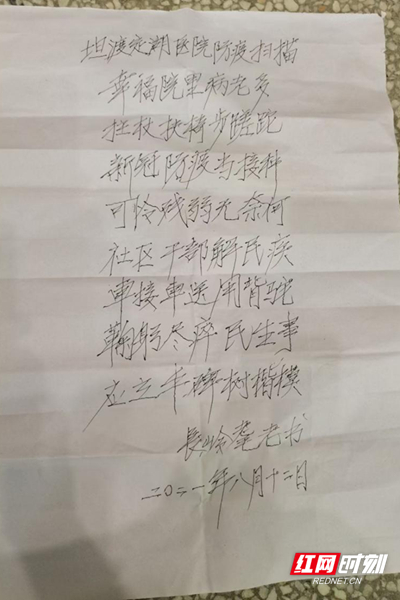 坦渡定湖医院防疫扫描
幸福院里病老多
拄杖扶椅步蹉跎
新冠防疫当接种
可怜残弱无奈何
社区干部解民疾
車接車送用背驼
鞠躬尽瘁民生事
应立丰碑树楷模
長岭龚老书
二〇二一年八月十二日
红网时刻
REDNET.CN